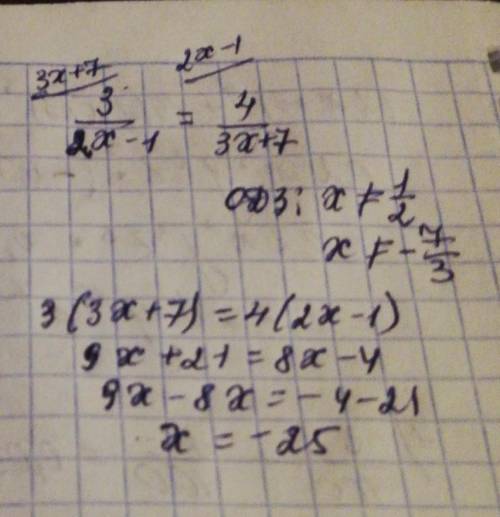 3x+7 2x-1
3/(2x-1) = 4/(3x+7)
ОДЗ: x ≠ 1/2
x ≠ -7/3
3(3x+7) = 4(2x-1)
9x+21 = 8x-4
9x-8x = -4-21
x = -25